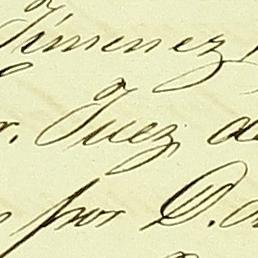 Jimenez,
r. Juez de
por D.